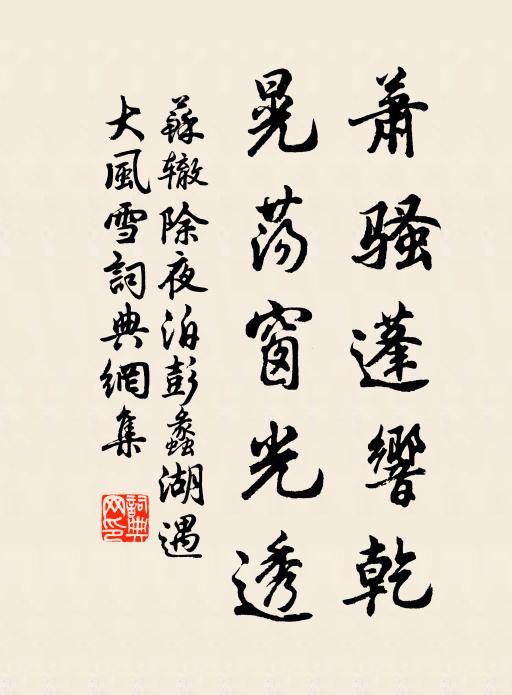 萧骚蓬響乾
晃荡窗光透
蘇辙除夜泊彭蠡湖遇
大風雪詞典網集
詞典网印